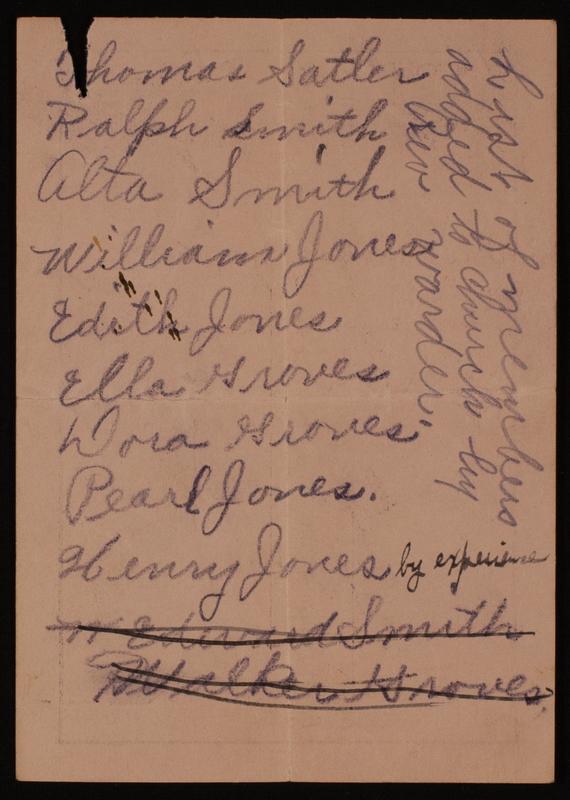 Thomas Satler
Ralph Smith
Alta Smith
William Jones
Edith Jones
Ella Groves
Dora Groves.
Pearl Jones.
Henry Jones by experience
Edward Smith
Walker Groves.
List of members
added to church by
Rev warder.